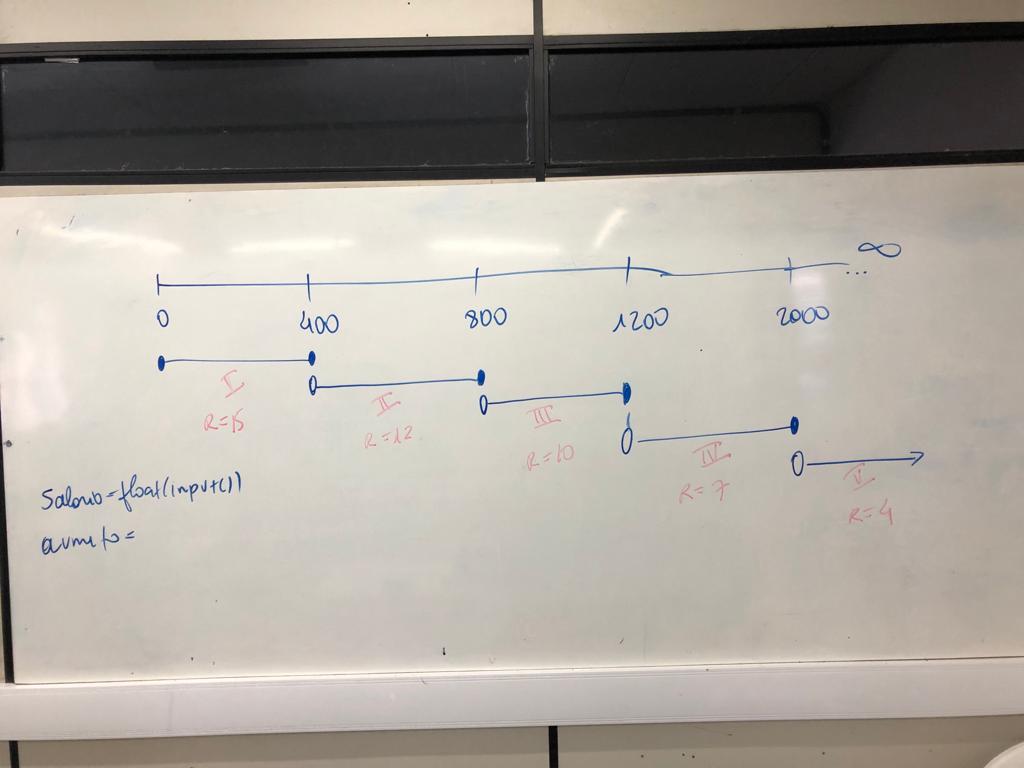 ∞
...
0 400 800 1200 2000
I
R=15
II
R=12
III
R=10
IV
R=7
V
R=4
Salario=float(input())
aumeto=